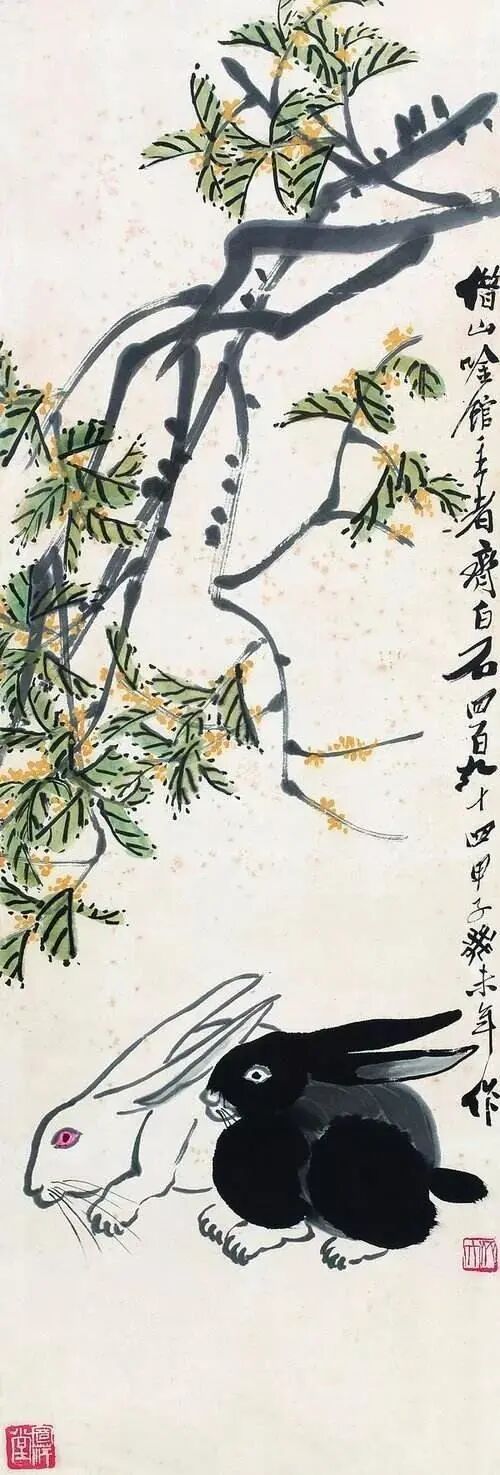 借山唫館主者齊白石四百九十四甲子癸未年作
寄萍堂